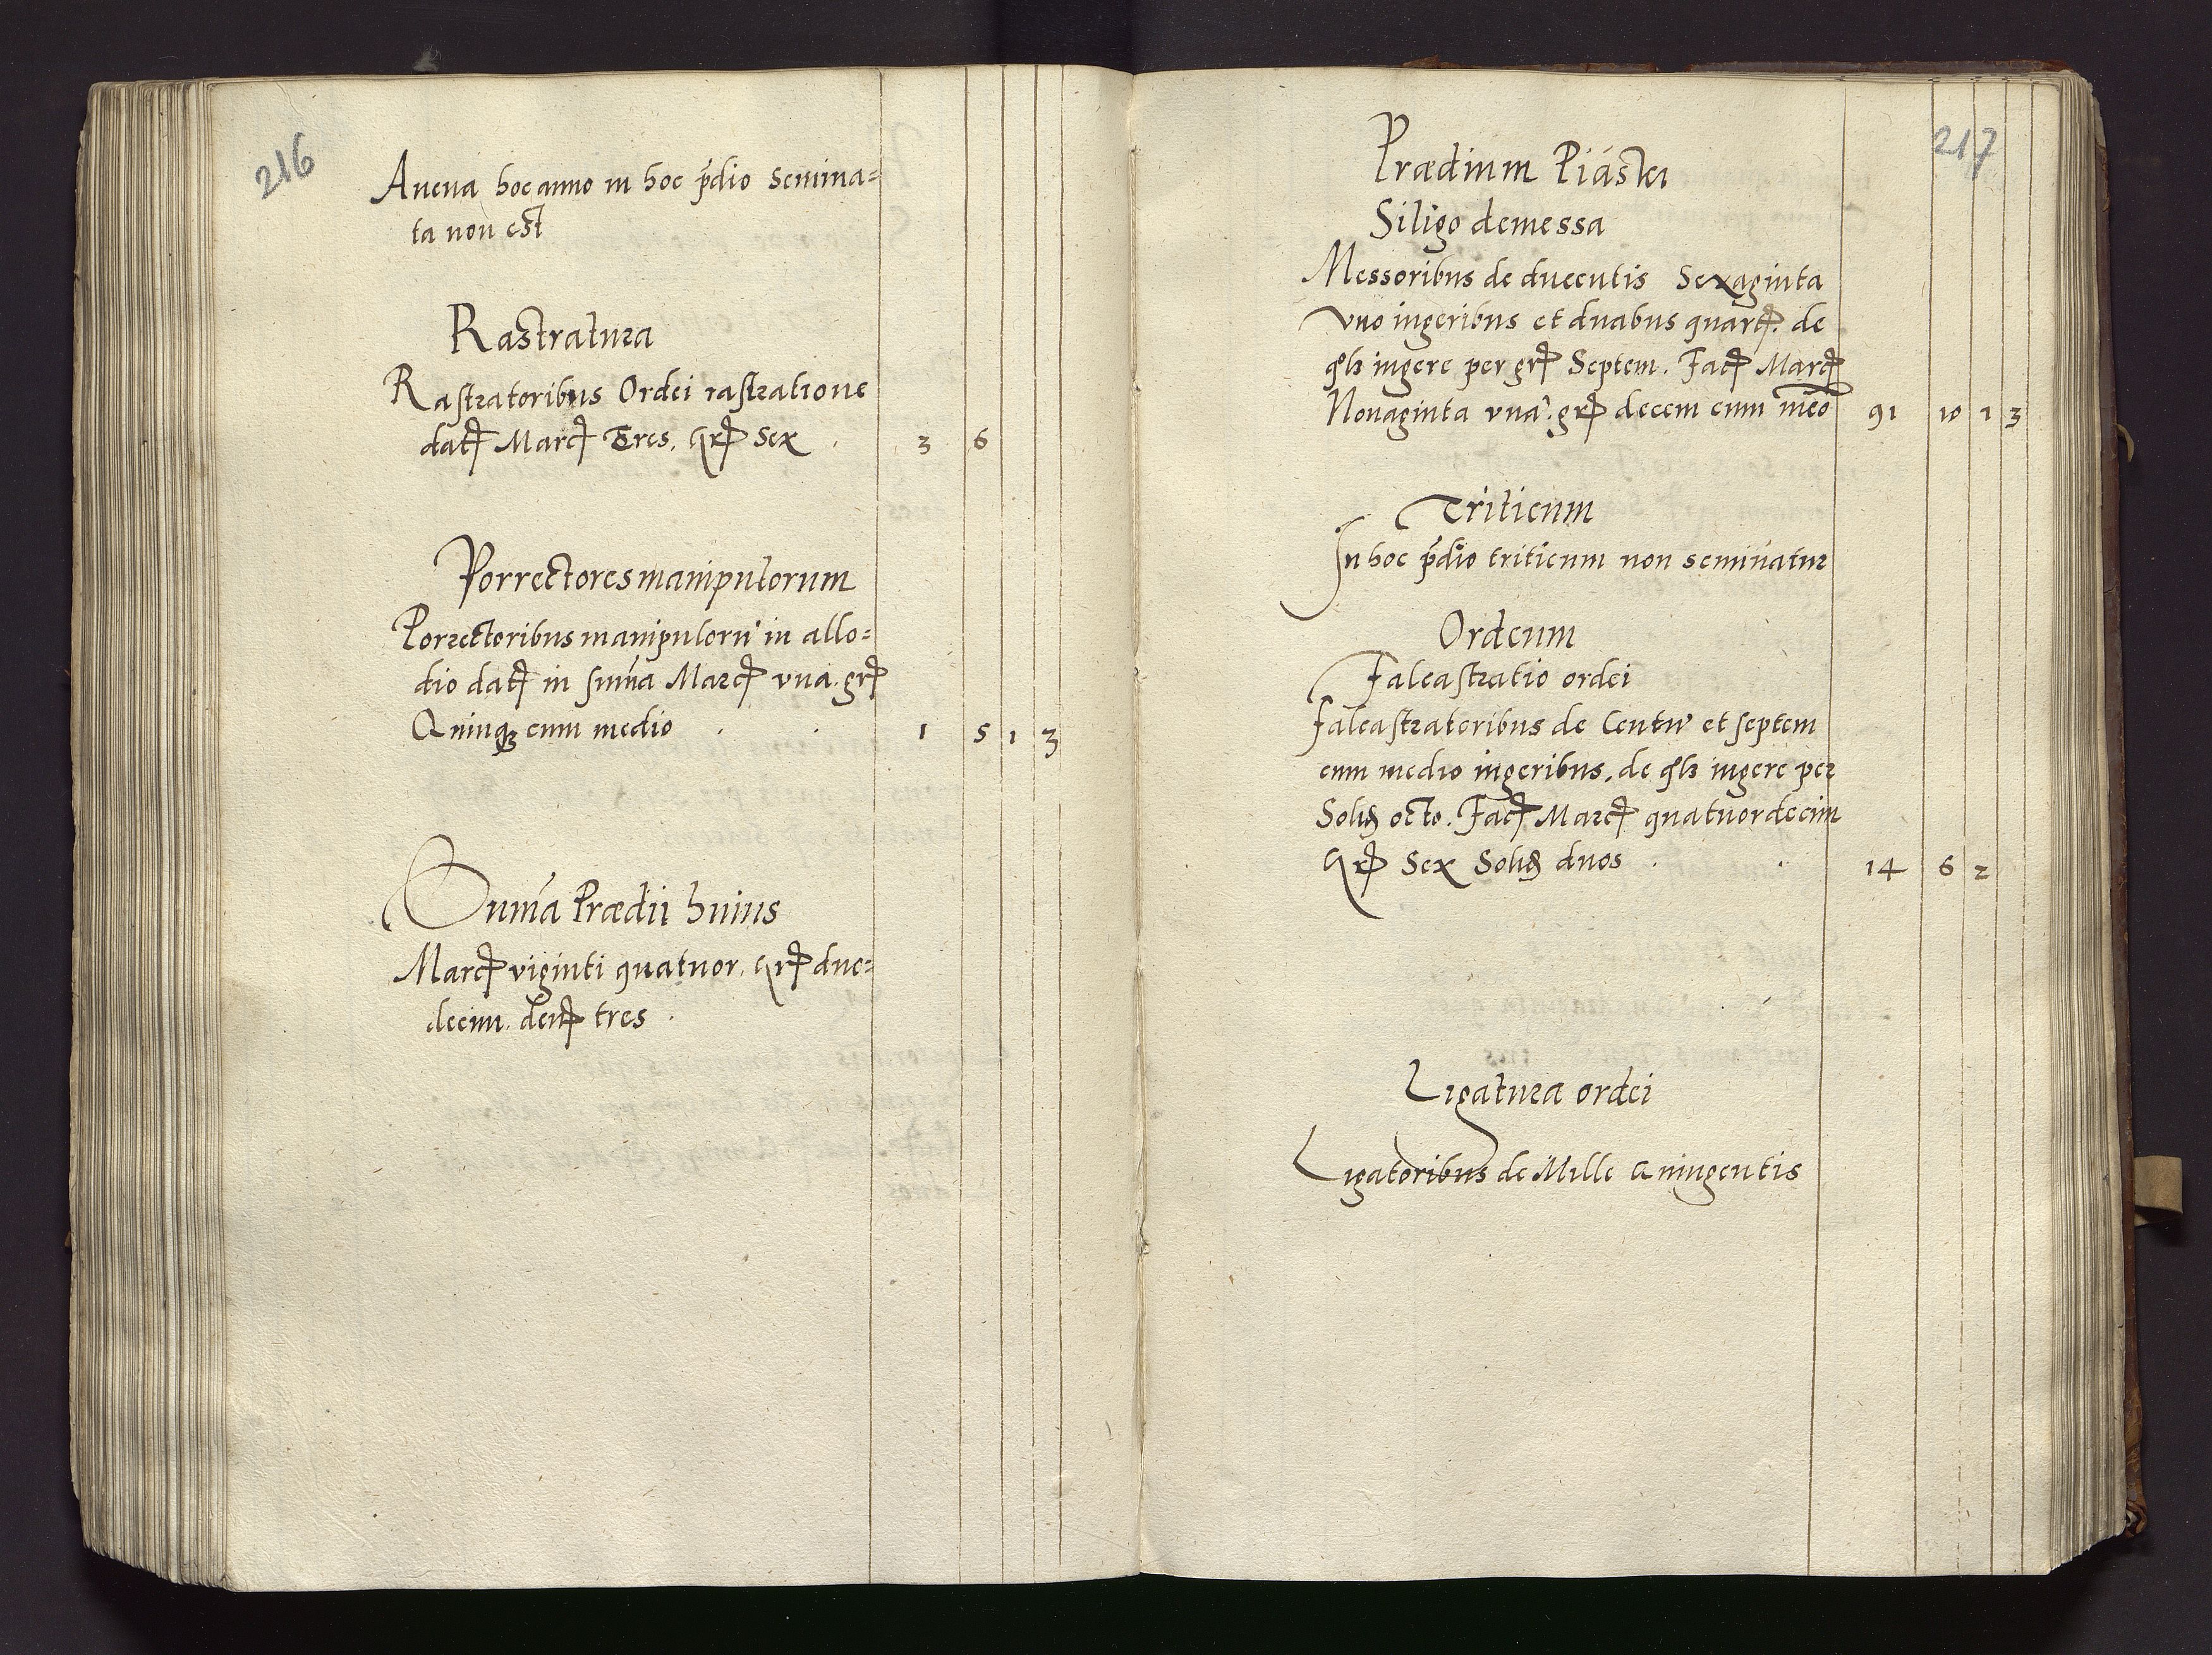 216
Auena hoc anno in hoc p̄dio Semina=
ta non est
Rastratura
Rastratoribus Ordei rastratione
dat Marc Tres. Gr Sex 3 6
Porrectores manipulorum
Porrectoribus manipulorū in allo=
dio dat in sum̄a Marc vna. gr
Quinq; cum medio 1 5 1 3
Sum̄a Prædii huius
Marc viginti quatuor. Gr duo=
decim. den tres
217
Prædium Piaski
Siligo demessa
Messoribus de ducentis Sexaginta
vno iugeribus et duabus quart. de
qlz iugere per gr Septem. Fac Marc
Nonaginta vna. gr decem cum meō 91 10 1 3
Triticum
In hoc p̄dio triticum non seminatur
Ordeum
Falcastratio ordei
Falcastratoribus de Centū et septem
cum medio iugeribus. de qlz iugere per
Solid octo. Fac Marc quatuordecim
Gr Sex Solid duos 14 6 2
Ligatura ordei
Ligatoribus de Mille Quingentis